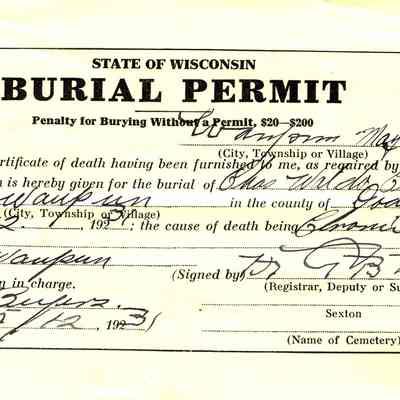 STATE OF WISCONSIN
BURIAL PERMIT
Penalty for Burying Without a Permit, $20—$200
Waupun May
(City, Township or Village)
ertificate of death having been furnished to me, as required by
n is hereby given for the burial of Chas Waldo
Waupun in the county of Dod
(City, Township or Village)
, 192 ; the cause of death being Chroni
Waupun
(Signed by)
n in charge. (Registrar, Deputy or Su
12, 1931
Sexton
(Name of Cemetery)